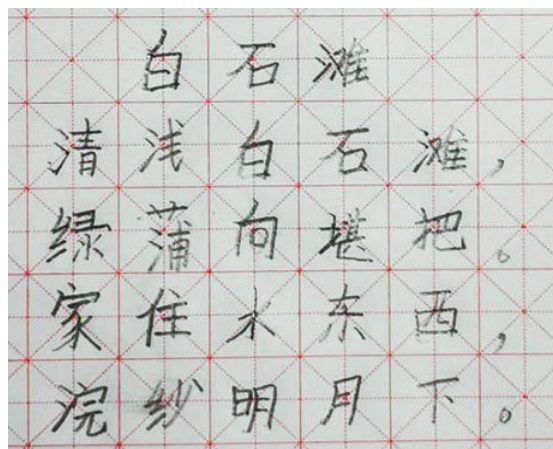 白石滩
清浅白石滩，
绿蒲向堪把。
家住水东西，
浣纱明月下。